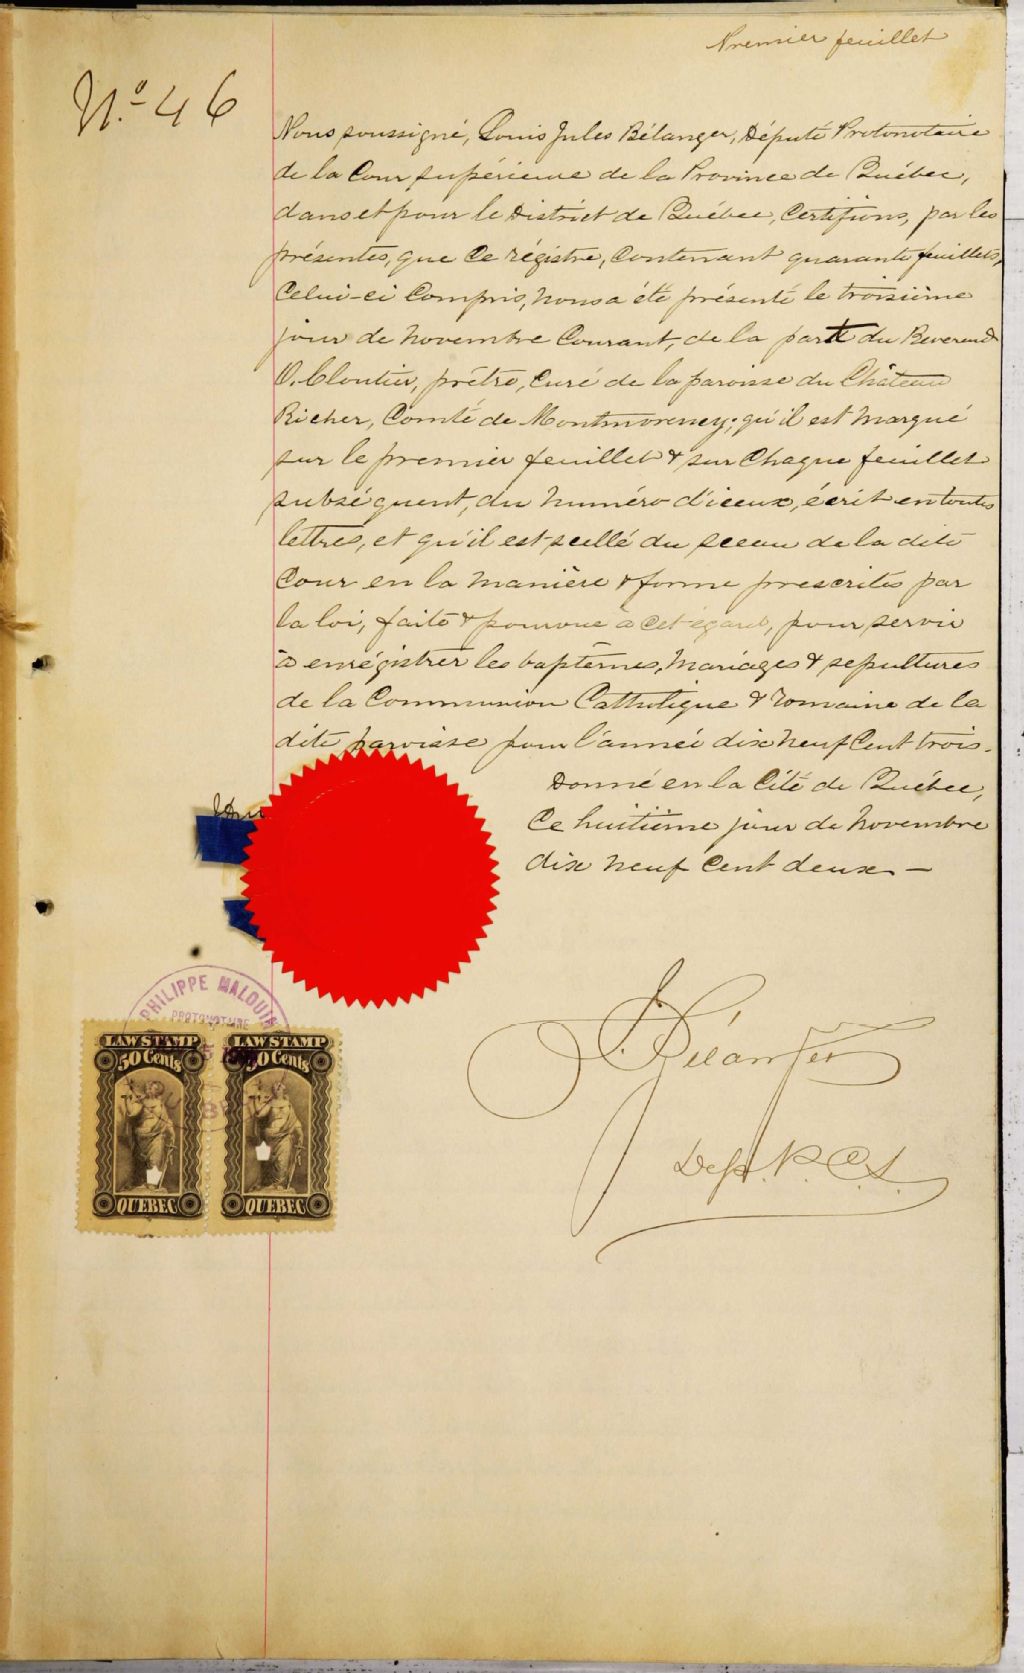 Premier feuillet
No. 46
Nous soussigné, Louis Jules Bélanger, Député Protonotaire
de la Cour Supérieure de la Province de Québec,
dans et pour le District de Québec, Certifions, par les
présentes, que ce régistre, contenant quarante feuillets,
Celui-ci Compris, nous a été présenté le troisième
jour de Novembre Courant, de la part du Reverend
O. Cloutier, prêtre, Curé de la paroisse du Château
Richer, Comté de Montmorency; qu'il est marqué
sur le premier feuillet & sur chaque feuillet
subséquent, du numéro d'iceux, écrit en toutes
lettres, et qu'il est scellé du sceau de la dite
Cour en la manière & forme prescrites par
la loi, faite & pourvue à cet égard, pour servir
à enrégistrer les baptêmes, mariages & sepultures
de la Communion Catholique & romaine de la
dite paroisse pour l'année dix neuf Cent trois.
Donné en la Cité de Québec,
Ce huitième jour de Novembre
dix neuf Cent deux —
PHILIPPE MALOUIN
PROTONOTAIRE
LAW STAMP
50 Cents
QUEBEC
LAW STAMP
50 Cents
QUEBEC
J. Bélanger
Dep. P. C. S.